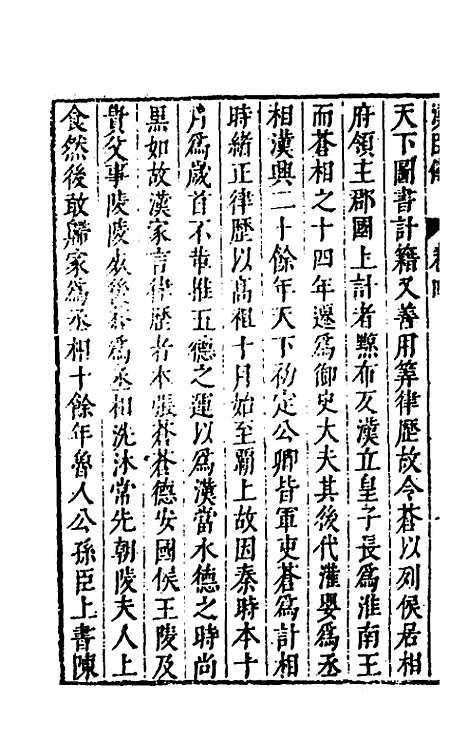 天下圖書計籍又善用筭律歷故令蒼以列侯居相
府領主郡國上計者黥布反漢立皇子長爲淮南王
而蒼相之十四年遷爲御史大夫其後代灌嬰爲丞
相漢興二十餘年天下初定公卿皆軍吏蒼爲計相
時緒正律歷以高祖十月始至覇上故因秦時本十
月爲歲首不革推五德之運以爲漢當水德之時尚
黑如故漢家言律歷者本張蒼蒼德安國侯王陵及
貴父事陵陵死後蒼爲丞相洗沐常先朝陵夫人上
食然後敢歸家爲丞相十餘年魯人公孫臣上書陳